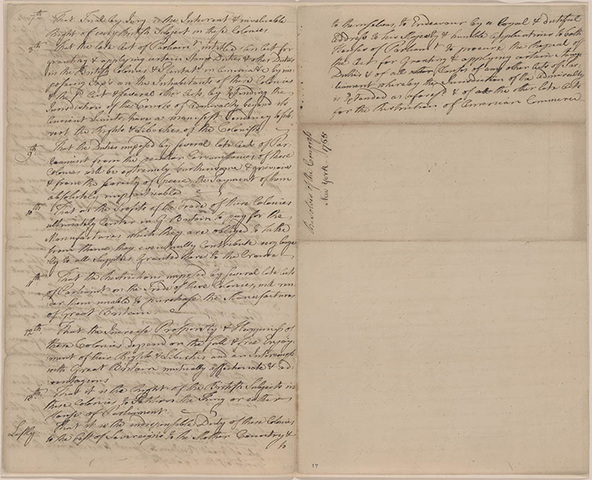 7th That Trial by Jury is the Inherent & invaluable
Right of every British Subject in these Colonies
8th That the late Act of Parliamt intitled an Act for
granting & applying certain Stamp Duties & other Duties
in the British Colonies & Plantats in America &c by im
posing Taxes on the Inhabitants of these Colonies
& the sd Act & several other Acts by extending the
Jurisdiction of the Courts of Admiralty beyond its
antient Limits have a manifest Tendency to sub
vert the Rights & Liberties of the Colonists
9th That the Duties imposed by several late Acts of Par
liament from the peculiar Circumstances of these
Colonies will be extremely burthensome & grievous
& from the scarcity of Specie the Payment of them
absolutely impracticable
10th That as the Profits of the Trade of these Colonies
ultimately Center in G Britain to pay for the
Manufactures which they are obliged to take
from thence they eventually contribute very large
ly to all Supplies granted there to the Crown
11th That the Restrictions imposed by several late Acts
of Parliament on the Trade of these Colonies will ren
der them unable to purchase the Manufactures
of Great Britain
12th That the Increase Prosperity & Happiness of
these Colonies depend on the full & free Enjoy
ment of their Rights & Liberties and an Intercourse
with Great Britain mutually affectionate & ad
vantageous
13th That it is the Right of the British Subjects in
these Colonies to Petition the King or either
House of Parliament
Lastly That it is the indispensible Duty of these Colonies
to the best of Sovereigns to the Mother Country &
to
to themselves, to Endeavour by a Loyal & dutiful
Address to his Majesty & humble Applications to both
Houses of Parliamt to procure the Repeal of
the Act for Granting & applying certain Stamp
Duties & of all other Clauses of any other Acts of Par
liament whereby the Jurisdiction of the Admiralty
is Extended as aforesd & of all the other late Acts
for the Restriction of American Commerce
of the Congress
New York 1765